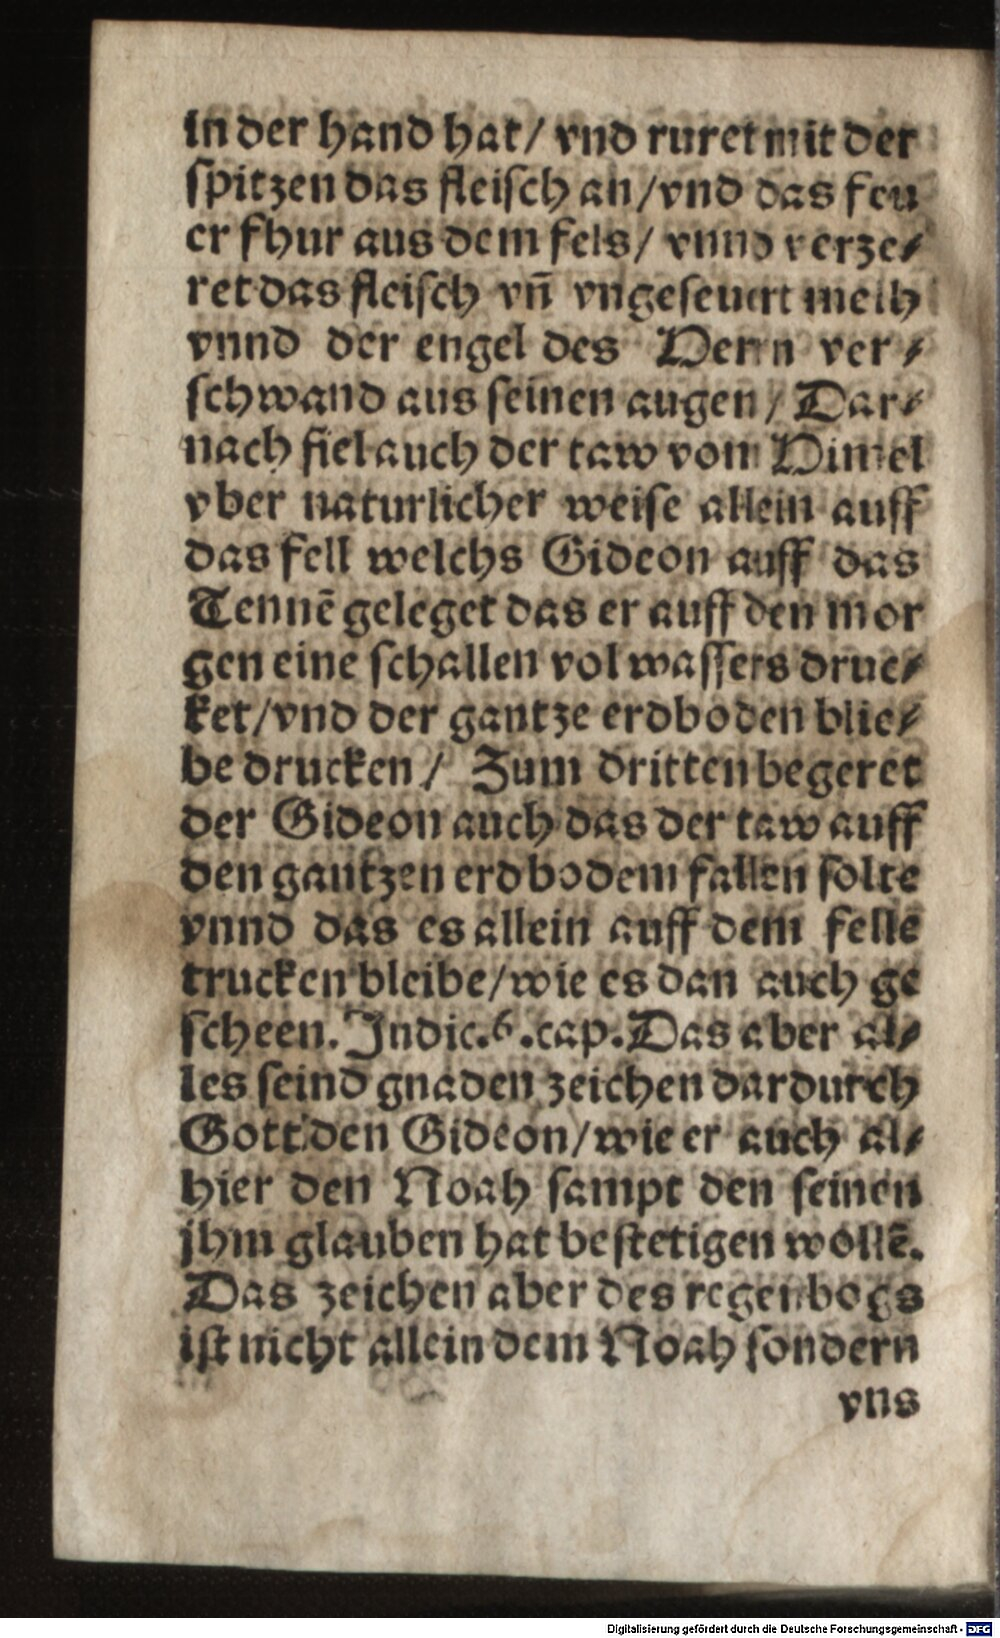 in der hand hat/ vnd ruret mit der
spitzen das fleisch an/vnd das feu
er fhur aus dem fels/ vnnd verze⸗
ret das fleisch vñ vngeseuert melh
vnnd der engel des Herrn ver⸗
schwand aus seinen augen/ Dar⸗
nach fiel auch der taw vom Himel
vber naturlicher weise allein auff
das fell welchs Gideon auff das
Tennē geleget das er auff den mor
gen eine schallen vol wassers druc⸗
ket/vnd der gantze erdboden blie⸗
be drucken/ Zum dritten begeret
der Gideon auch das der taw auff
den gantzen erdbodem fallen solte
vnnd das es allein auff dem felle
trucken bleibe/wie es dan auch ge
scheen. Indic.6.cap.Das aber al⸗
les seind gnaden zeichen dardurch
Gott den Gideon/wie er auch al⸗
hier den Noah sampt den seinen
jhm glauben hat bestetigen wollē.
Das zeichen aber des regenbogs
ist nicht allein dem Noah sondern
vns
Digitalisierung gefördert durch die Deutsche Forschungsgemeinschaft - DFG